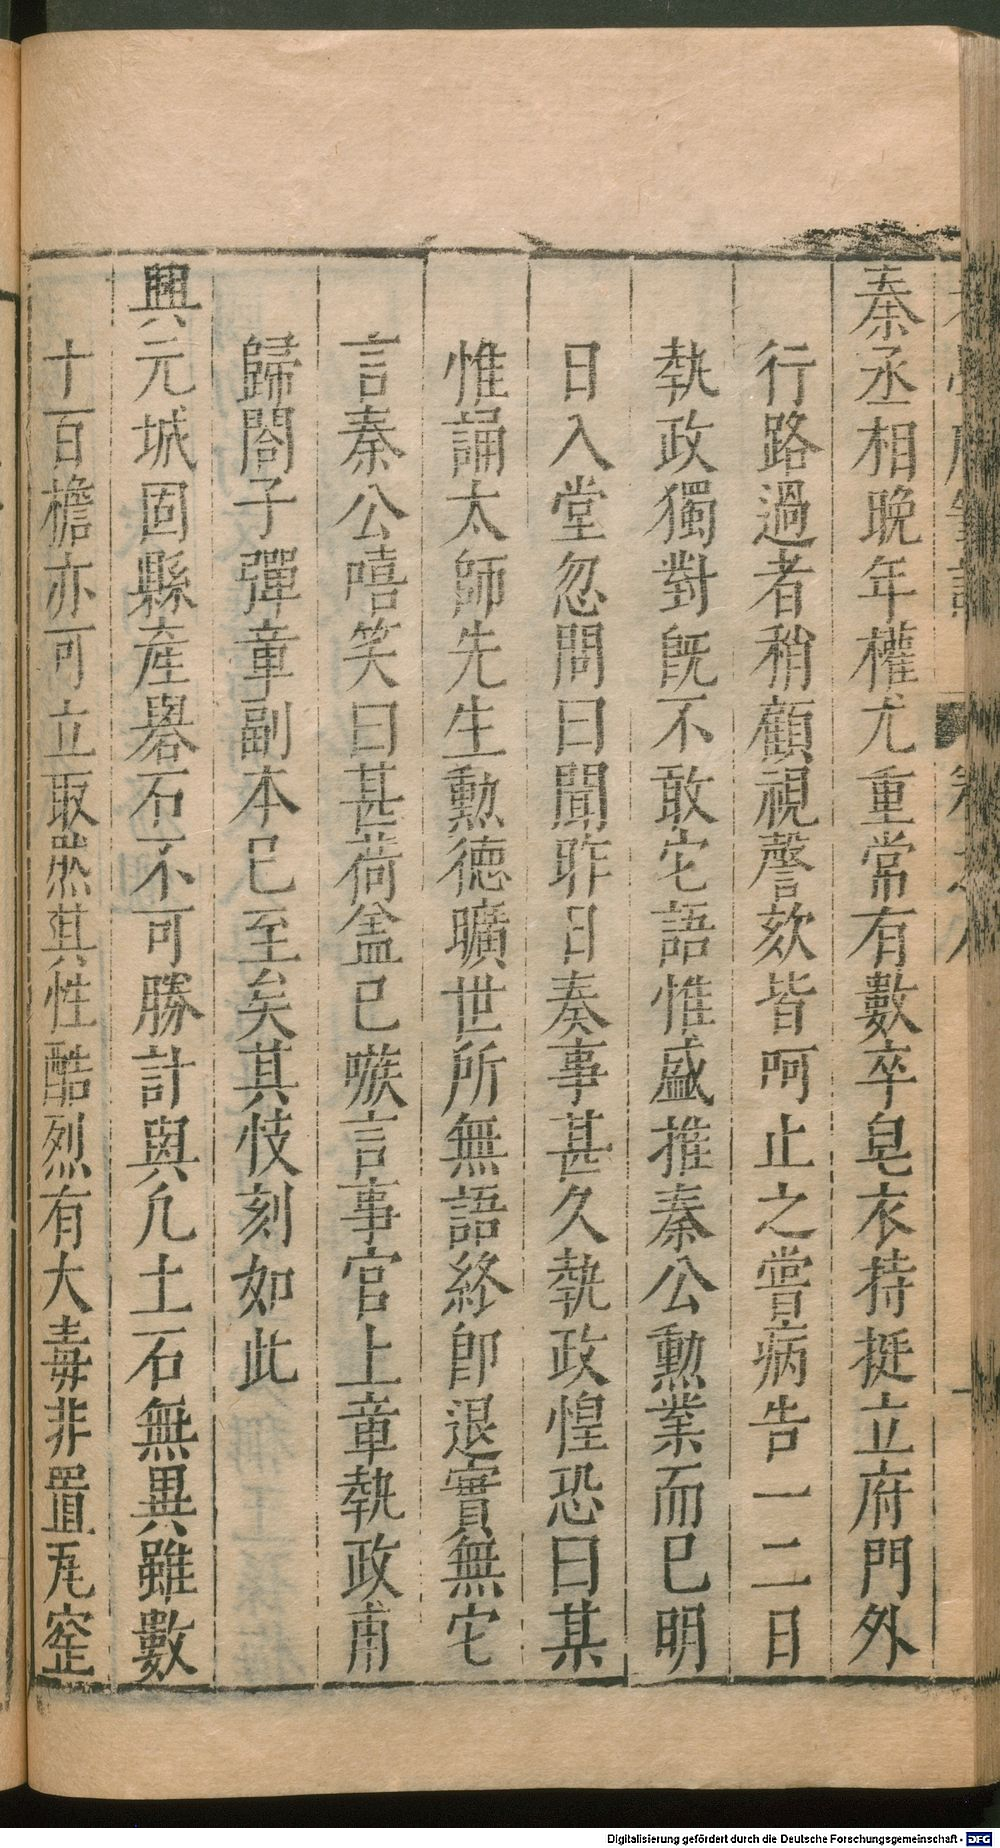 秦丞相晚年權尤重常有數卒皂衣持挺立府門外
行路過者稍顧視謦欬皆呵止之嘗病告一二日
執政獨對旣不敢它語惟盛推秦公勳業而已明
日入堂忽問曰聞昨日奏事甚久執政惶恐曰某
惟誦太師先生勳德曠世所無語終卽退實無它
言秦公嘻笑曰甚荷盖已嗾言事官上章執政甫
歸閤子彈章副本已至矣其忮刻如此
興元城固縣產礜石不可勝計與凡土石無異雖數
十百檐亦可立取然其性酷烈有大毒非置瓦窑
Digitalisierung gefördert durch die Deutsche Forschungsgemeinschaft - DFG